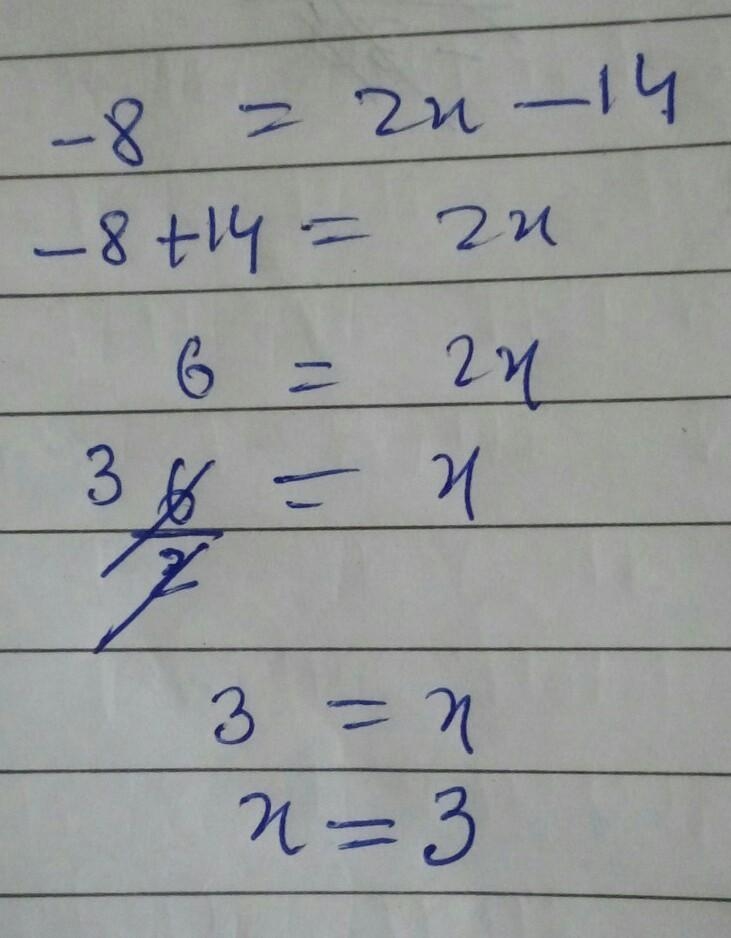 -8 = 2x - 14
-8 + 14 = 2x
6 = 2x
3 6/2 = x
3 = x
x = 3